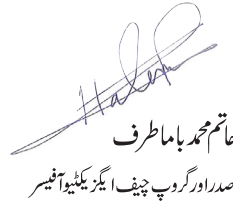 حاتم محمد بامطرف
صدر اور گروپ چیف ایگزیکٹیو آفیسر